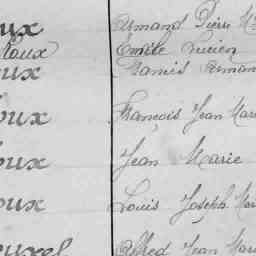 oux Armand Pierre M
lloux Emile Lucien
oux Francis Armand
oux François Jean Mari
oux Jean Marie
oux Louis Joseph Mar
ouxel Alfred Jean Mari